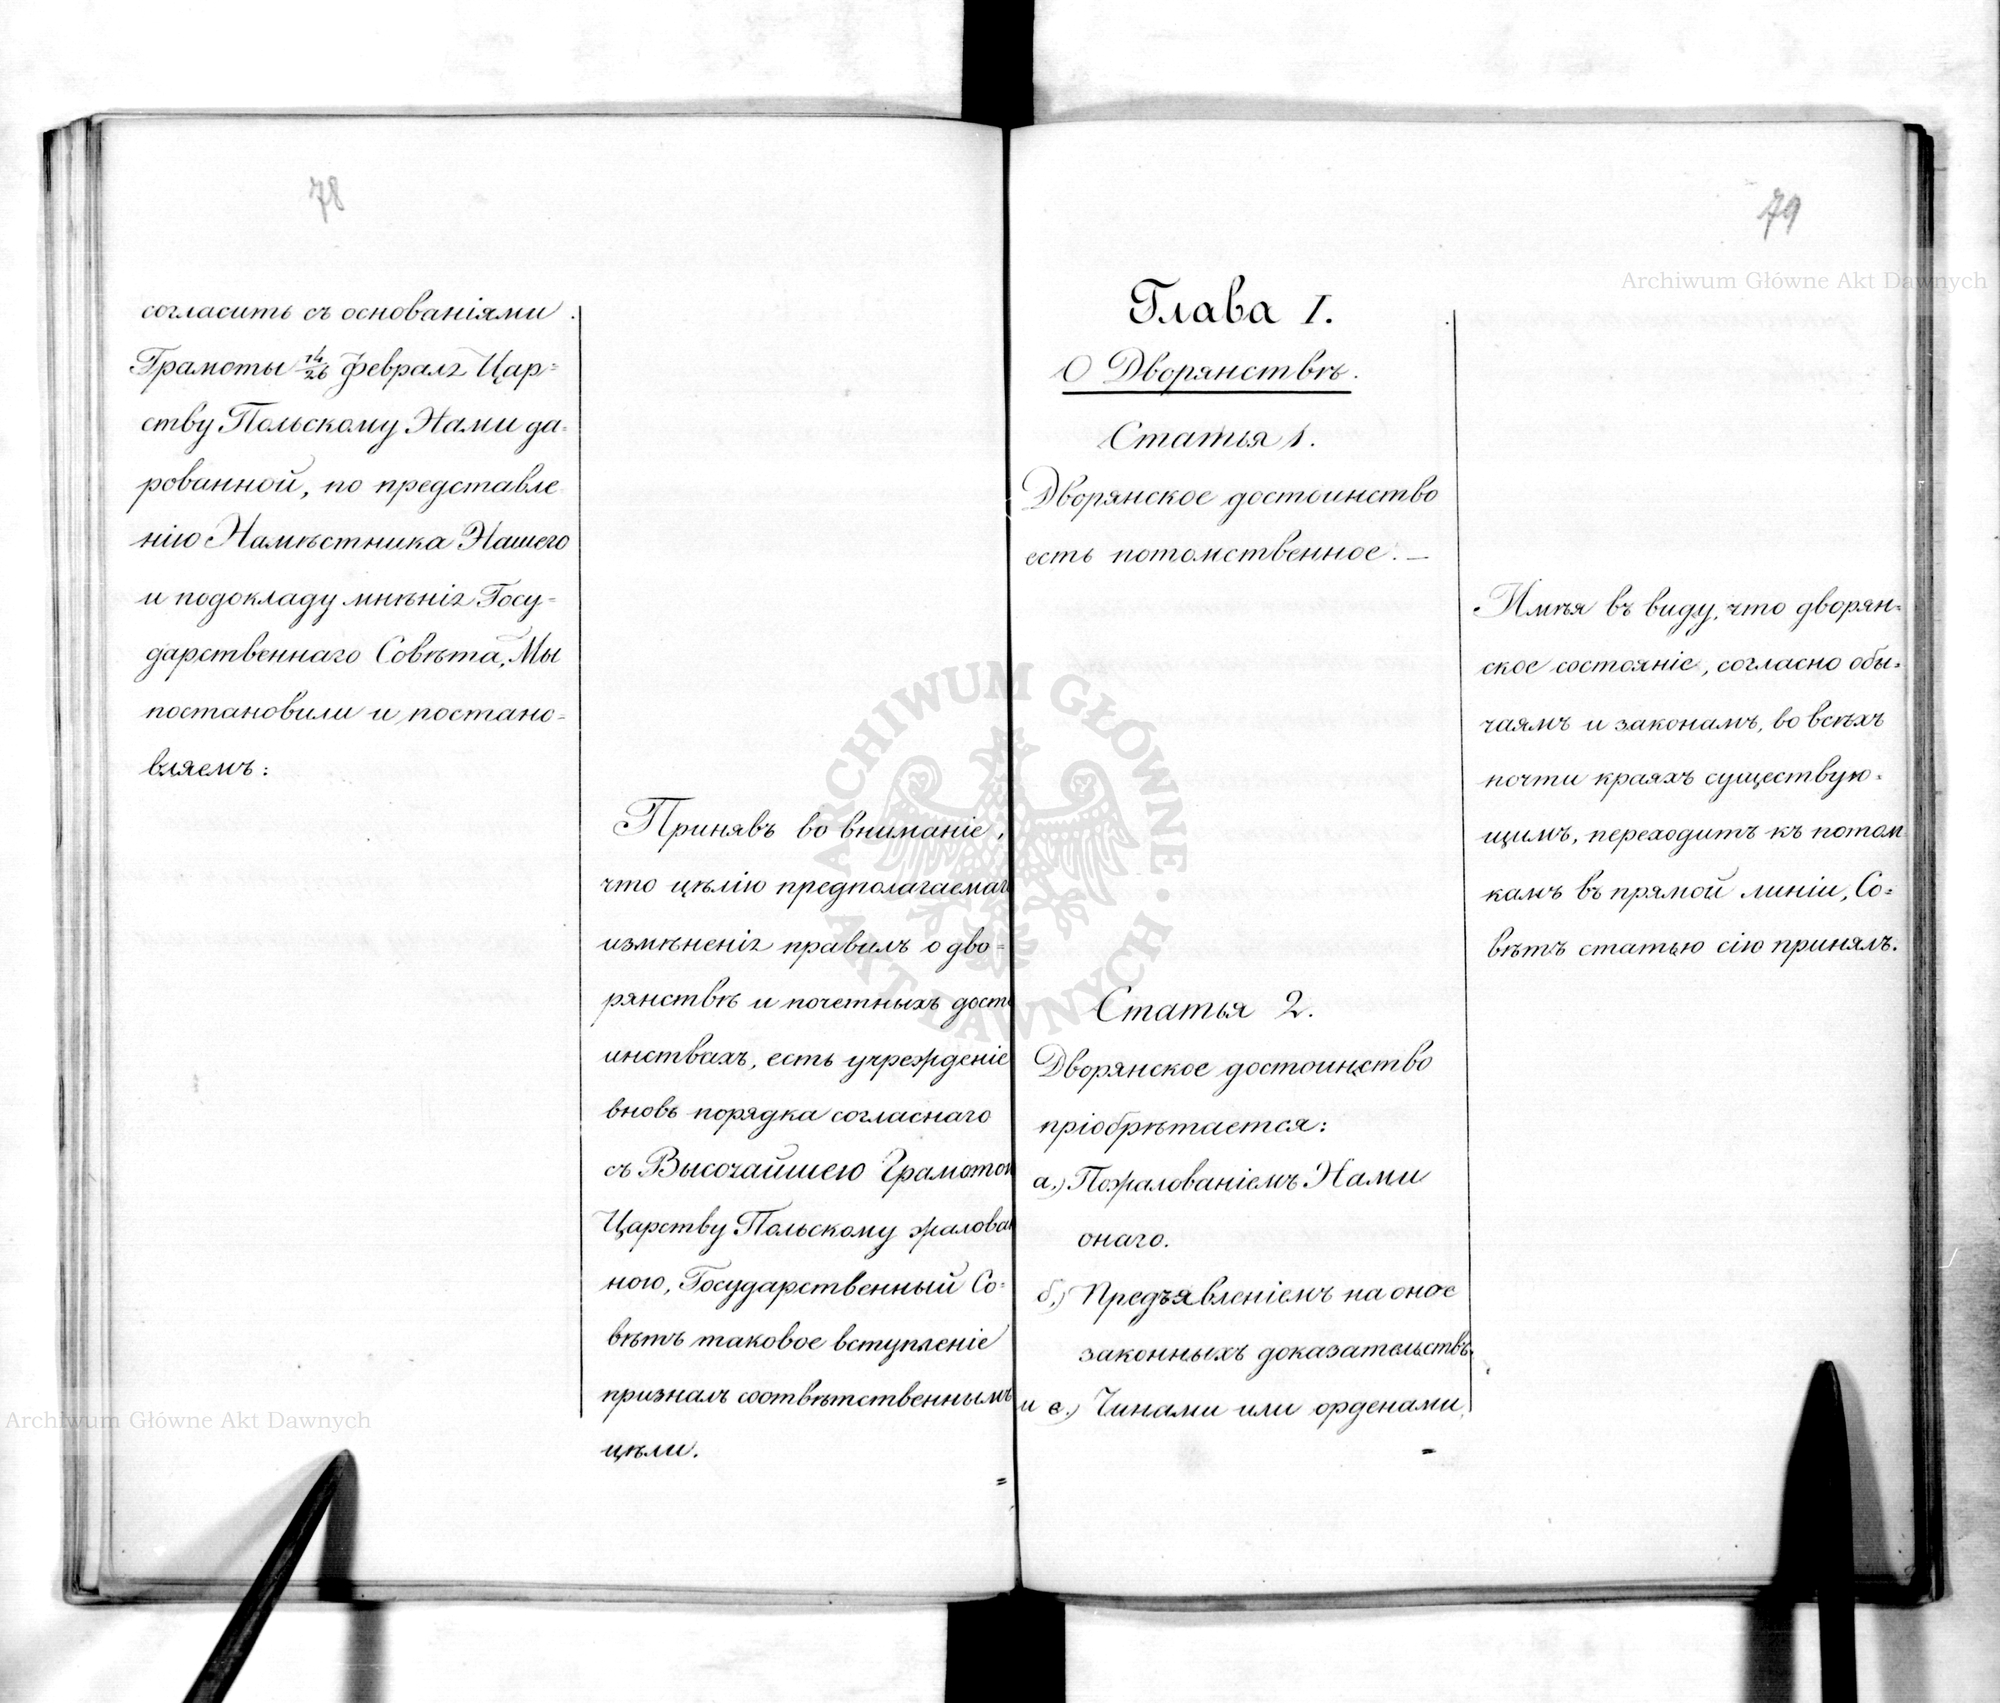 78
согласить съ основаніями
Грамоты 14/26 февраля Цар=
ству Польскому Нами да=
рованной, по представле
нію Намѣстника Нашего
и подокладу мнѣнія Госу=
дарственнаго Совѣта, Мы
постановили и постано=
вляемъ:
Принявъ во вниманіе,
что цѣлію предполагаемаго
измѣненія правилъ о дво=
рянствѣ и почетныхъ досто
инствахъ, есть учрежденіе
вновь порядка согласнаго
съ Высочайшею Грамотою
Царству Польскому жалован
ною, Государственный Со=
вѣтъ таковое вступленіе
призналъ соотвѣтственнымъ
цѣли.
79
Глава I.
О Дворянствѣ.
Статья 1.
Дворянское достоинство
есть потомственное. —
Имѣя въ виду, что дворян=
ское состояніе, согласно обы=
чаямъ и законамъ, во всѣхъ
почти краяхъ существую=
щимъ, переходитъ къ потом
камъ въ прямой линіи, Со=
вѣтъ статью сію принялъ.
Статья 2.
Дворянское достоинство
пріобрѣтается:
а.) Пожалованіемъ Нами
онаго.
б.) Предъявленіемъ на оное
законныхъ доказательствъ.
и в.) Чинами или орденами.
Archiwum Główne Akt Dawnych
Archiwum Główne Akt Dawnych
ARCHIWUM GŁÓWNE AKT DAWNYCH